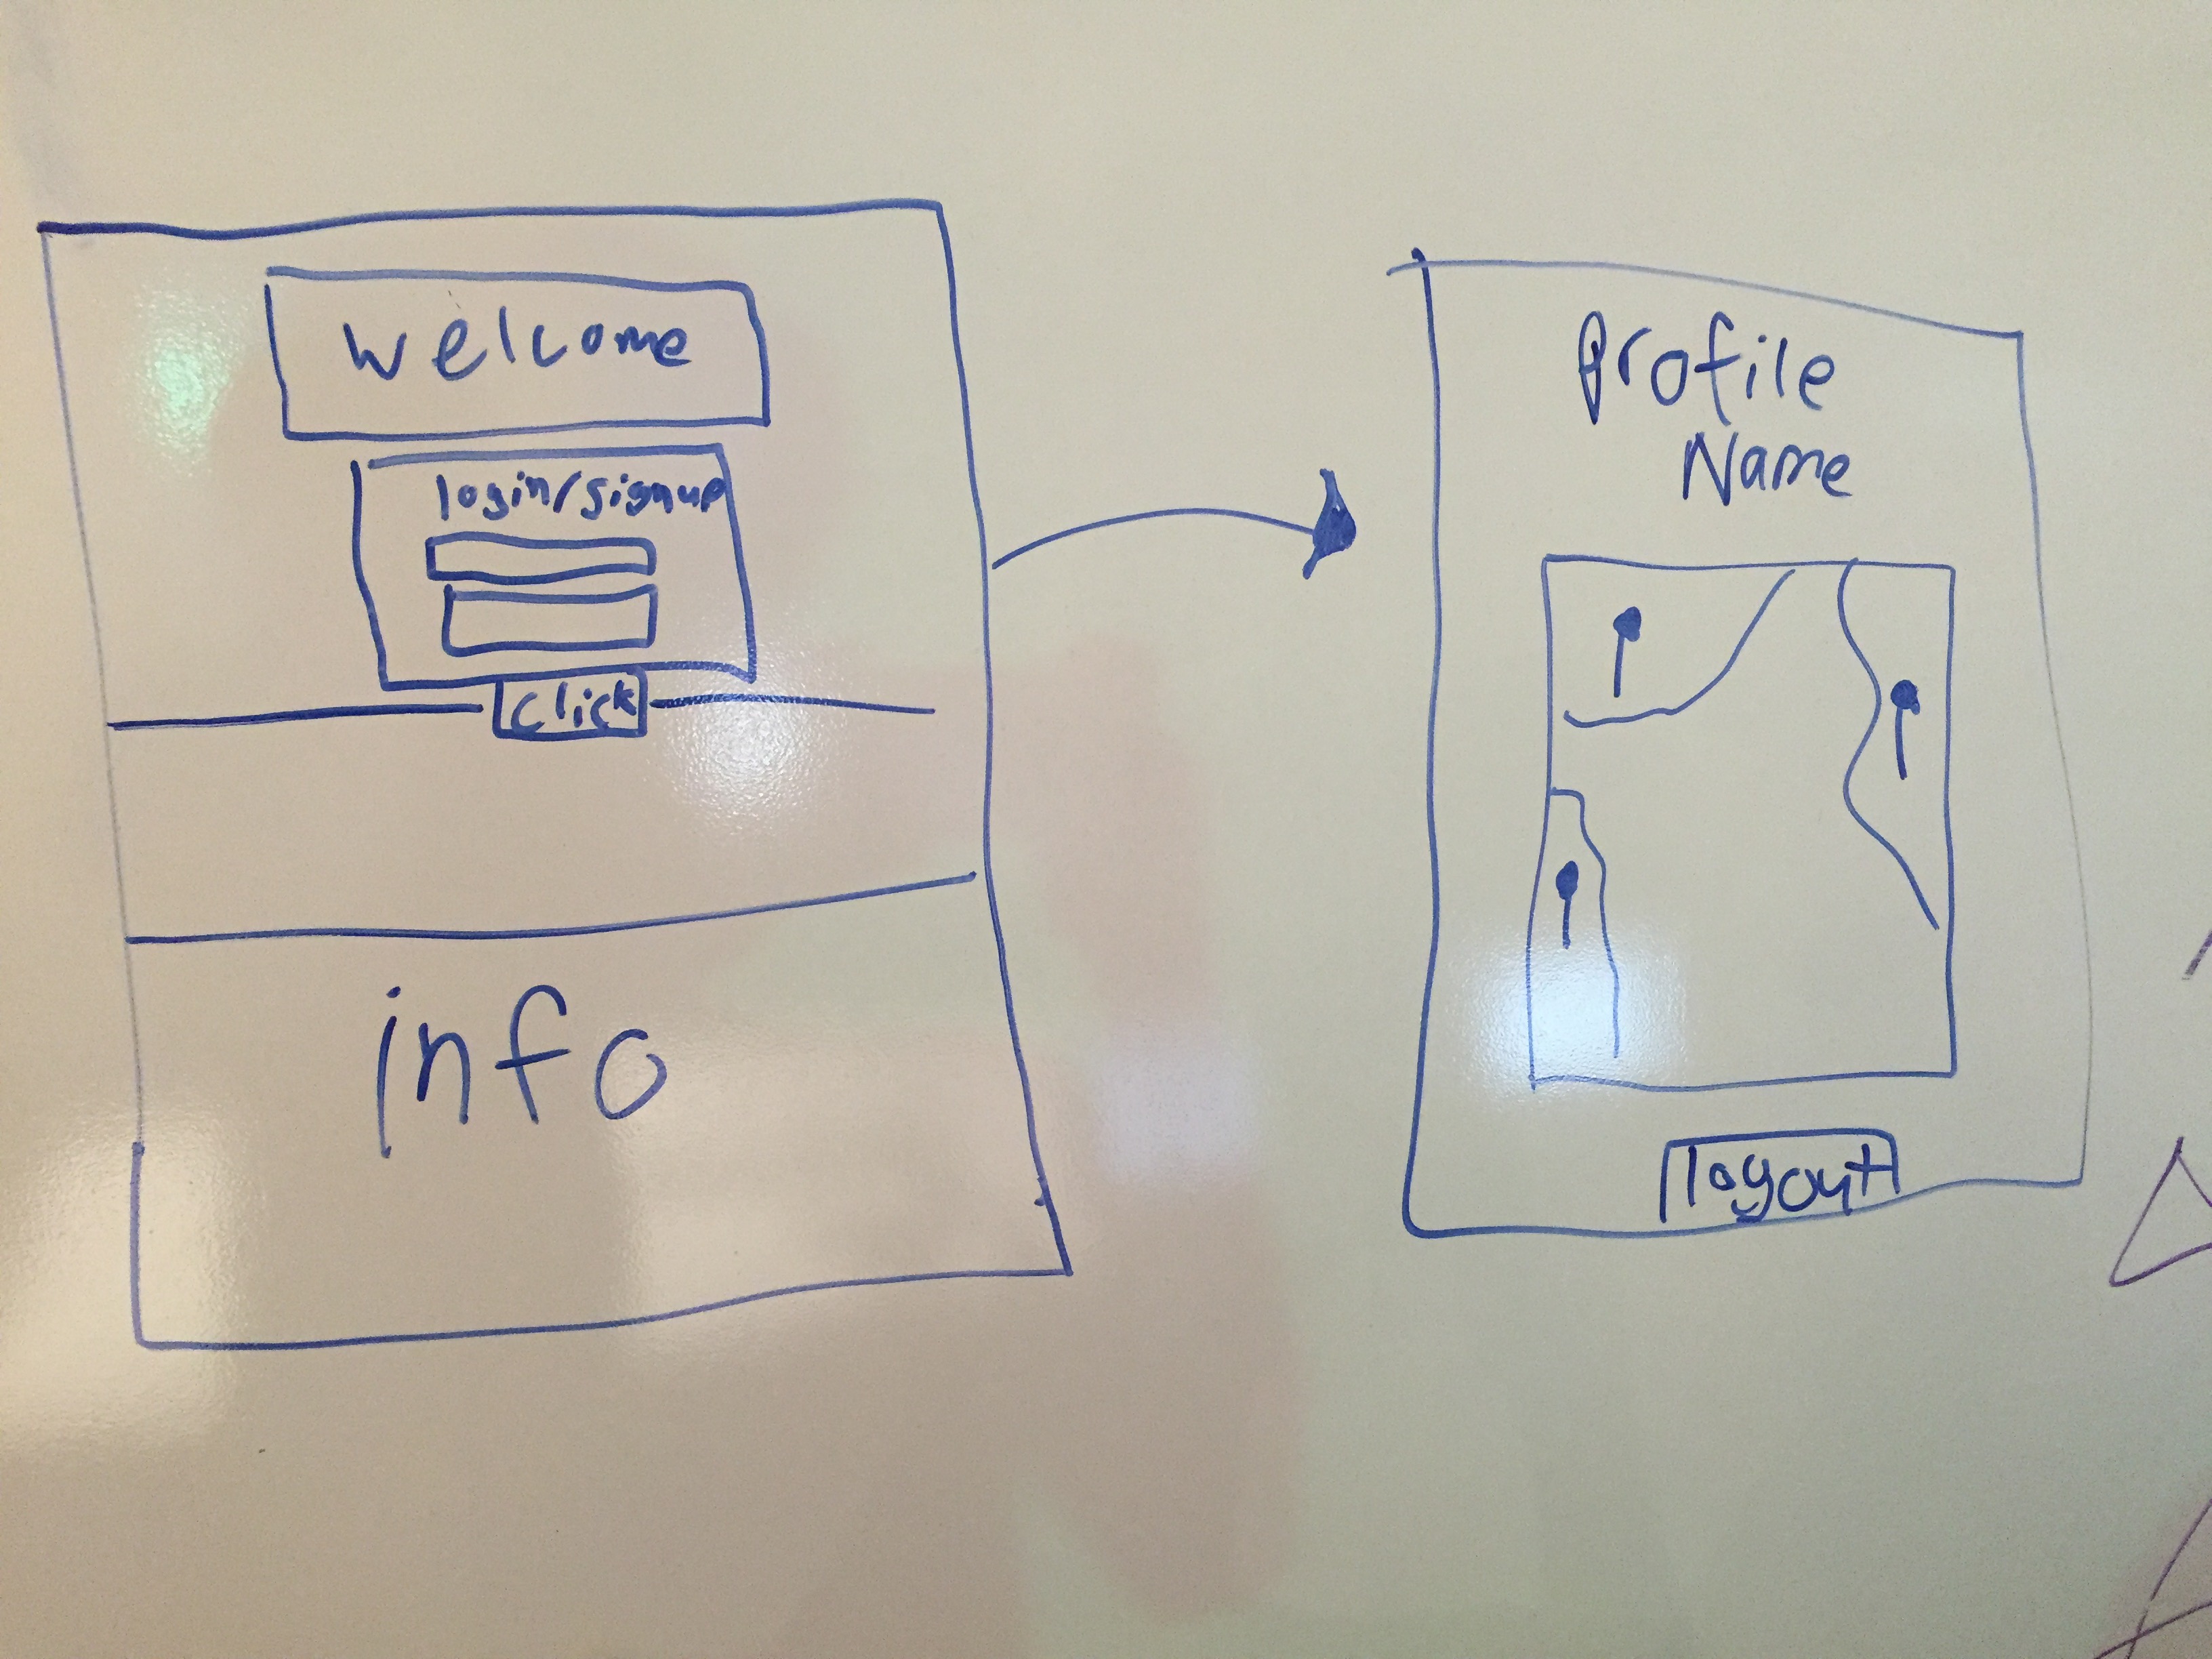 welcome
login/signup
click
info
Profile
Name
logout